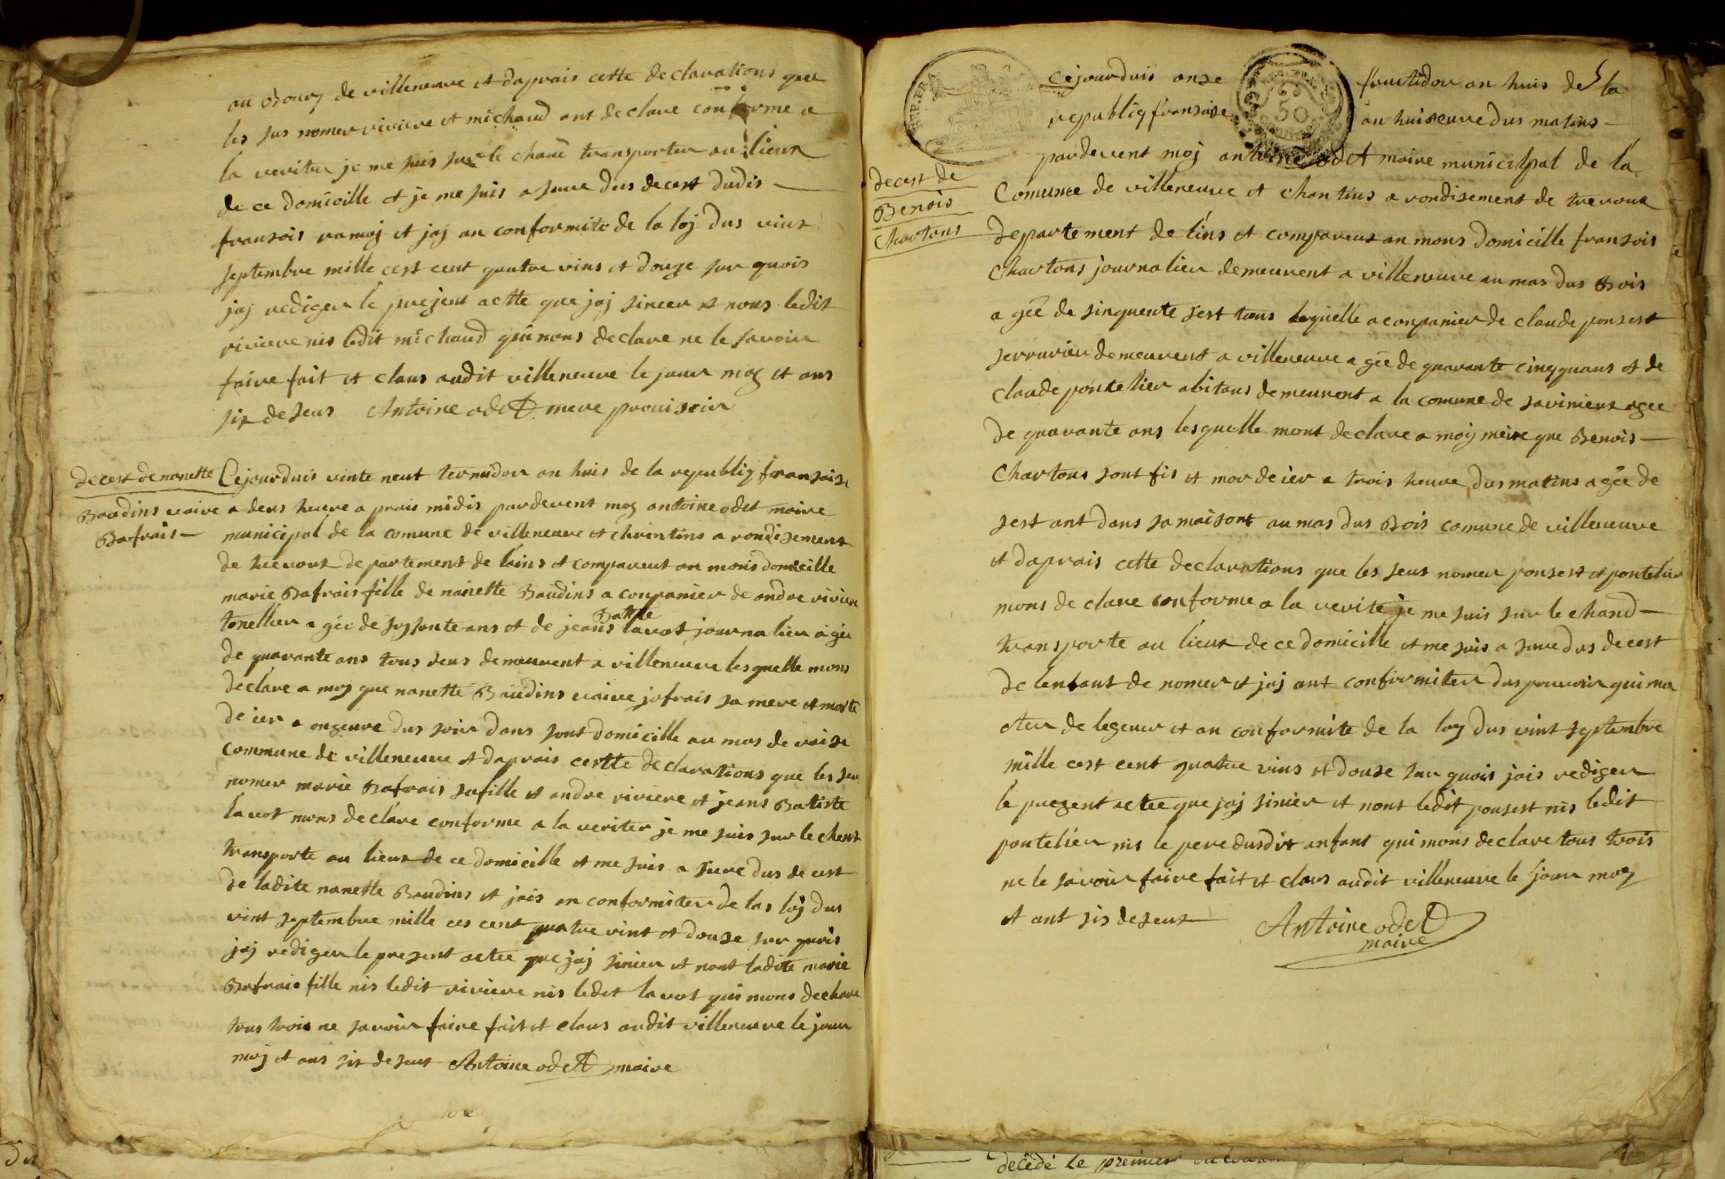 au Bourg de villeneuve et daprais cette declarations que
les sus nomer riviere et michaud ont declare conforme a
la veriter je me suis sur le chant transporter au lieux
de ce domicille et je me suis asure dus decest dudis
fransois ramoj et jaj an conformite de la loj dus vint
septembre mille cest cent quatre vins et douze sur quois
jaj rediger le present actte que jaj sinier et nons ledit
riviere nis ledit michaud qui mons declare ne le savoir
faire fait et claus audit villeneuve le jour moy et ans
sis deseus Antoine odet mere provisoir
decest de nanette
Baudins vaive
Bafrais
Cejourduis vinte neut termidor an huis de la republiq fransaise
a deus heure aprais midis pardevent moy antoine odet maire
municipal de la comune de villeneuve et chaintins arondisement
de trevoux departement de lains et compareut an mons domicille
marie Bafrais fille de nanette Baudins aconpanier de andre riviere
tonellier agée de soysonte ans et de jeans Batiste lavot journalier agée
de quarante ans tous deus demeurent a villeneuve lesquelle mons
declare a moy que nanette Baudins vaive jofrais sa mere et morte
de ier a onzeure dus soir dans sont domicille au mas de vaise
commune de villeneuve et daprais cestte declarations que les sus
nomer marie Bafrais sa fille et andre riviere et jeans Batiste
lavot mons declare conforme a la veriter je me suis sur le chent
transporte au lieux de ce domicille et me suis asure dus decest
de ladite nanette Baudins et jais an conformiter de las loj dus
vint septembre mille ces cent quatre vint et douse sur quois
jaj rediger le present actee que jaj sinier et nont ladite marie
Bafrais fille nis ledit riviere nis ledit lavot qui mons declare
tous trois ne savoir faire fait et claus audit villeneuve le jour
moj et ans sis deseus Antoine odet maire
REP. FRA
50
Cejourduis onse fructidor an huis de la
republiq fransaise an huiseure dus matins
pardevent moj antoine odet maire municipal de la
decest de
Benois
Chartons
Comune de villeneuve et chantins arondisement de trevoux
departement de lins et compareus an mons domicille fransois
Chartons journalier demeurent a villeneuve au mas dus Bois
agée de sinquente sest tans lequelle aconpanier de claude ponsest
serrurier demeurent a villeneuve agée de quarante cinqquans et de
claude pontelier abitans demeurent a la comune de savinieux agee
de quarante ans lesquelle mont declare a moy meire que Benois
Chartons sont fis et mor de ier a trois heure dus matins agée de
sest ant dans sa maisont au mas dus Bois comune de villeneuve
et daprais cette declarations que les seus nomer ponsest et pontelier
mons declare conforme a la verite je me suis sur le chand
transporte au lieux de ce domicille et me suis asure dus decest
de lenfant de nomer et jaj ant conformiter dus pouvoir qui ma
eter deleguer et an conformite de la loy dus vint septembre
mille cest cent quatre vins et douse sur quois jais rediger
le prezent actee que jaj sinier et nont ledit ponsest nis ledit
pontelier nis le pere dusdit anfant qui mons declare tous trois
ne le savoir faire fait et claus audit villeneuve le jour moy
et ant sis deseus Antoine odet
maire
decédé le premier